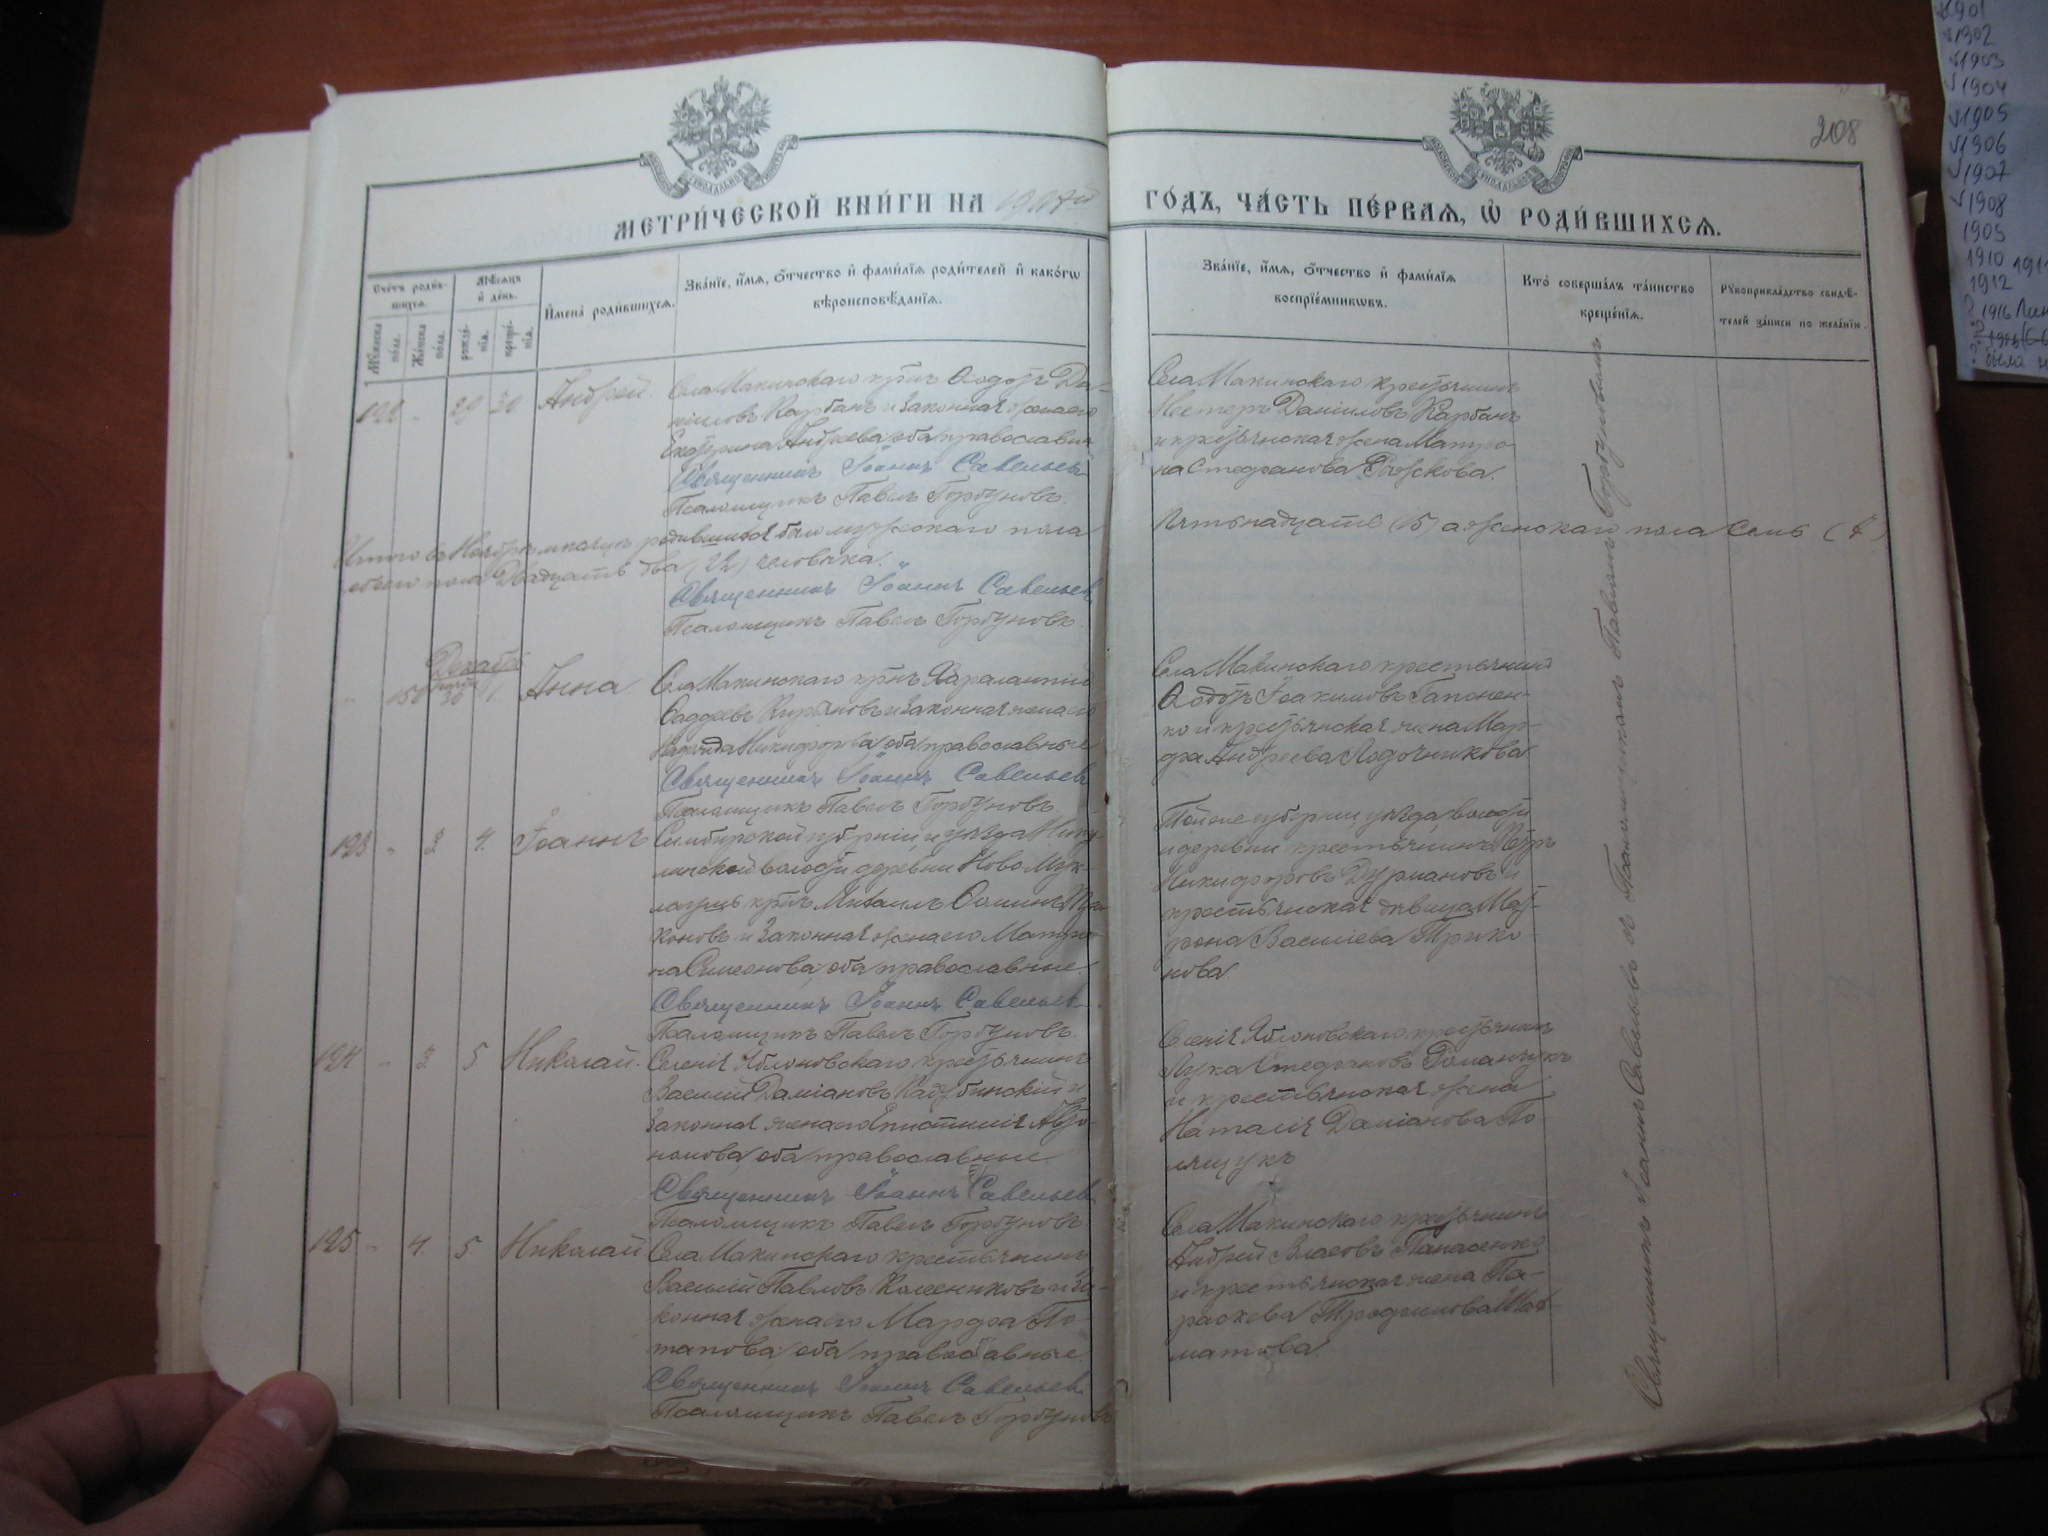 208
МЕТРИ́ЧЕСКОЙ КНИ́ГИ НА
ГО́ДЪ, ЧА́СТЬ ПЕ́РВАѦ, Ѡ҆ РОДИ́ВШИХСѦ.
Сче́тъ роди́в-
шихсѧ.
Мѣ́сѧцъ
и҆ де́нь.
И҆мена̀ роди́вшихсѧ.
Зва́нїе, и҆́мѧ, ѻ҆́тчество и҆ фами́лїѧ роди́телей и҆ како́гѡ
вѣроисповѣ́данїѧ.
Мꙋ́жеска
по́ла.
Же́нска
по́ла.
рожде́-
нїѧ.
креще́-
нїѧ.
Зва́нїе, и҆́мѧ, ѻ҆́тчество и҆ фами́лїѧ
воспрїе́мникѡвъ.
Кто̀ соверша́лъ та́инство
креще́нїѧ.
Рꙋкоприкла́дство свидѣ́-
телей за́писи по жела́нїю.
122 - 29 30 Андрей.
Села Макинскаго кр҃нъ Ѳеодоръ Да-
ніиловъ Карбанъ и законная жена его
Екатерина Андреева, оба православн.
Священникъ Іоаннъ Савельевъ
Псаломщикъ Павелъ Горбуновъ.
Села Макинскаго крестьянинъ
Несторъ Даніиловъ Карбанъ
и крестьянская жена Матро-
на Стефанова
Итого въ Ноябрѣ мѣсяцѣ родившихся было мужскаго пола
Пятьнадцать (15) а женскаго пола семь (7)
обоего пола Двадцать два (22) человѣка.
Священникъ Іоаннъ Савельевъ
Псаломщикъ Павелъ Горбуновъ.
Декабрь
150 30 1. Анна
Села Макинскаго кр҃нъ Харалампій
Ѳаддеевъ Кирьяновъ и законная жена его
Никифорова, оба православные
Священникъ Іоаннъ Савельевъ
Псаломщикъ Павелъ Горбуновъ.
Села Макинскаго крестьянинъ
Ѳеодоръ Іоакимовъ Гапонен-
ко и крестьянская жена Мар-
фа Андреева Лодочникова
123 - 2 4. Іоаннъ
Симбирской губерніи и уѣзда
волости деревни Ново
кр҃нъ Михаилъ Ѳоминъ
и законная жена его Матро-
на Симеонова, оба православные.
Священникъ Іоаннъ Савельевъ.
Псаломщикъ Павелъ Горбуновъ.
Той же губерніи, уѣзда, волости
и деревни крестьянинъ Петръ
Никифоровъ Дурмановъ и
крестьянская дѣвица Мат-
рона Василіева Трико-
нова.
124 - 3 5 Николай.
Селенія Яблоновскаго крестьянинъ
Василій Даміановъ Кадубинскій и
законная жена его Епистимія Авто-
номова, оба православные
Священникъ Іоаннъ Савельевъ
Псаломщикъ Павелъ Горбуновъ.
Селенія Яблоновскаго крестьянинъ
Лука Стефановъ Романчукъ
и крестьянская жена
Наталія Даміанова По-
лищукъ
125 - 4. 5 Николай
Села Макинскаго крестьянинъ
Василій Павловъ Колесниковъ и за-
конная жена его Марфа По-
тапова, оба православные
Священникъ Іоаннъ Савельевъ
Псаломщикъ Павелъ Горбуновъ
Села Макинскаго крестьянинъ
Андрей Власовъ Панасенко
и крестьянская жена Па-
раскева Трофимова Шах-
матова.
Священникъ Іоаннъ Савельевъ съ Псаломщикомъ Павломъ Горбуновымъ
√1901
√1902
√1903
√1904
√1905
√1906
√1907
√1908
1905
1910 191
1912
? 1916